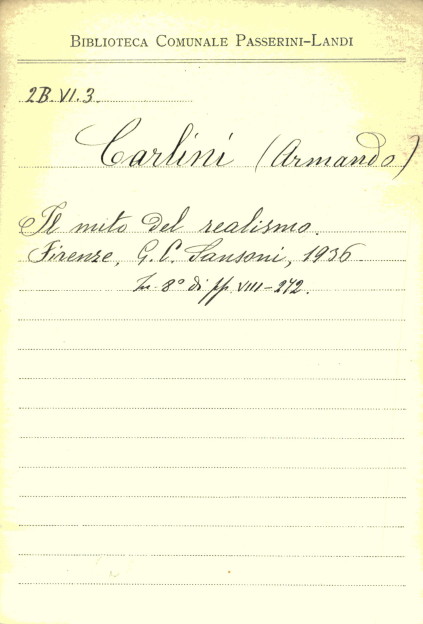 BIBLIOTECA COMUNALE PASSERINI-LANDI
2B.VI.3.
Carlini (Armando)
Il mito del realismo.
Firenze, G. C. Sansoni, 1936
In 8° di pp. VIII-272.